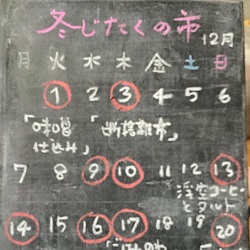 冬じたくの市
12月
月 火 水 木 金 土 日
1 2 3 4 5 6
「味噌仕込み」
7 8 9 10 11 12 13
浮空コーヒー
とタルト
14 15 16 17 18 19 20